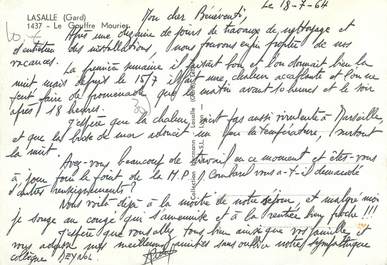 LASALLE (Gard)
1437 - Le Gouffre Mourier
Le 18-7-64
Mon cher Bénéventi,
Après une dizaine de jours de travaux de nettoyage et
d'entretien des installations, nous pouvons enfin profiter de nos
vacances.
La première semaine il faisait bon et l'on dormait bien la
nuit mais depuis le 15/7 il fait une chaleur accablante et l'on ne
peut faire de promenade que le matin avant 10 heures et le soir
après 18 heures.
J'espère que la chaleur n'est pas aussi virulente à Marseille,
et que la brise de mer adoucit un peu la température, surtout
la nuit.
Avez-vous beaucoup de travail en ce moment et êtes-vous
à jour pour le point de la M.P.? vous a-t-il demandé
d'autres renseignements?
Nous voilà déjà à la moitié de notre séjour, et malgré moi
je songe au congé qui s'amenuise et à la rentrée bien proche !!!
J'espère que vous allez tous bien ainsi que vos familles, et
vous adresse nos meilleures pensées sans oublier notre sympathique
collègue